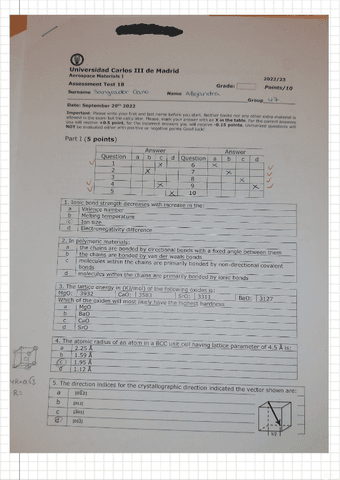 Universidad Carlos III de Madrid
Aerospace Materials I
2022/23
Assessment Test 1B
Grade: Points/10
Surname Name Alejandro Group 47
Date: September 29th 2022
Important: Please write your first and last name before you start. Neither books nor any other online material is
allowed in the exam but the calculator. Please, mark your answer with an X in the table. For the correct answers
you will receive +0.5 point; for the incorrect answers you will receive -0.15 points. Unmarked questions will
NOT be evaluated either with positive or negative points Good luck!
Part I (5 points)
Answer Answer
Question a b c d Question a b c d
1 X 6 X
2 X 7 X
3 8 X
4 X 9 X
5 X 10
1. Ionic bond strength decreases with increase in the:
a Valence number
b Melting temperature
c Ion size
d Electronegativity difference
2. In polymeric materials:
a the chains are bonded by directional bonds with a fixed angle between them
b the chains are bonded by van der waals bonds
c molecules within the chains are primarily bonded by non-directional covalent
bonds
d molecules within the chains are primarily bonded by ionic bonds
3. The lattice energy in (KJ/mol) of the following oxides is:
MgO: 3932 CaO: 3583 SrO: 3311 BaO: 3127
Which of the oxides will most likely have the highest hardness
a MgO
b BaO
c CaO
d SrO
4. The atomic radius of an atom in a BCC unit cell having lattice parameter of 4.5 Å is:
a 2.25 Å
b 1.59 Å
c 1.95 Å
d 1.12 Å
4R=a√3
R=
5. The direction indices for the crystallographic direction indicated the vector shown are:
a
b
c
d
1/2